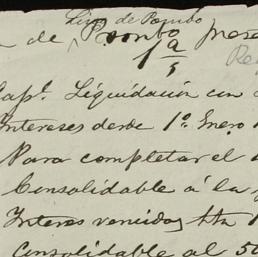 Lino de Pombo
de Pombo prese
1ª
5
Cap.l Liquidación con
Intereses desde 1º Enero
Para completar el
Consolidable á la
Interes vencidos hta 1
Consolidable al 50